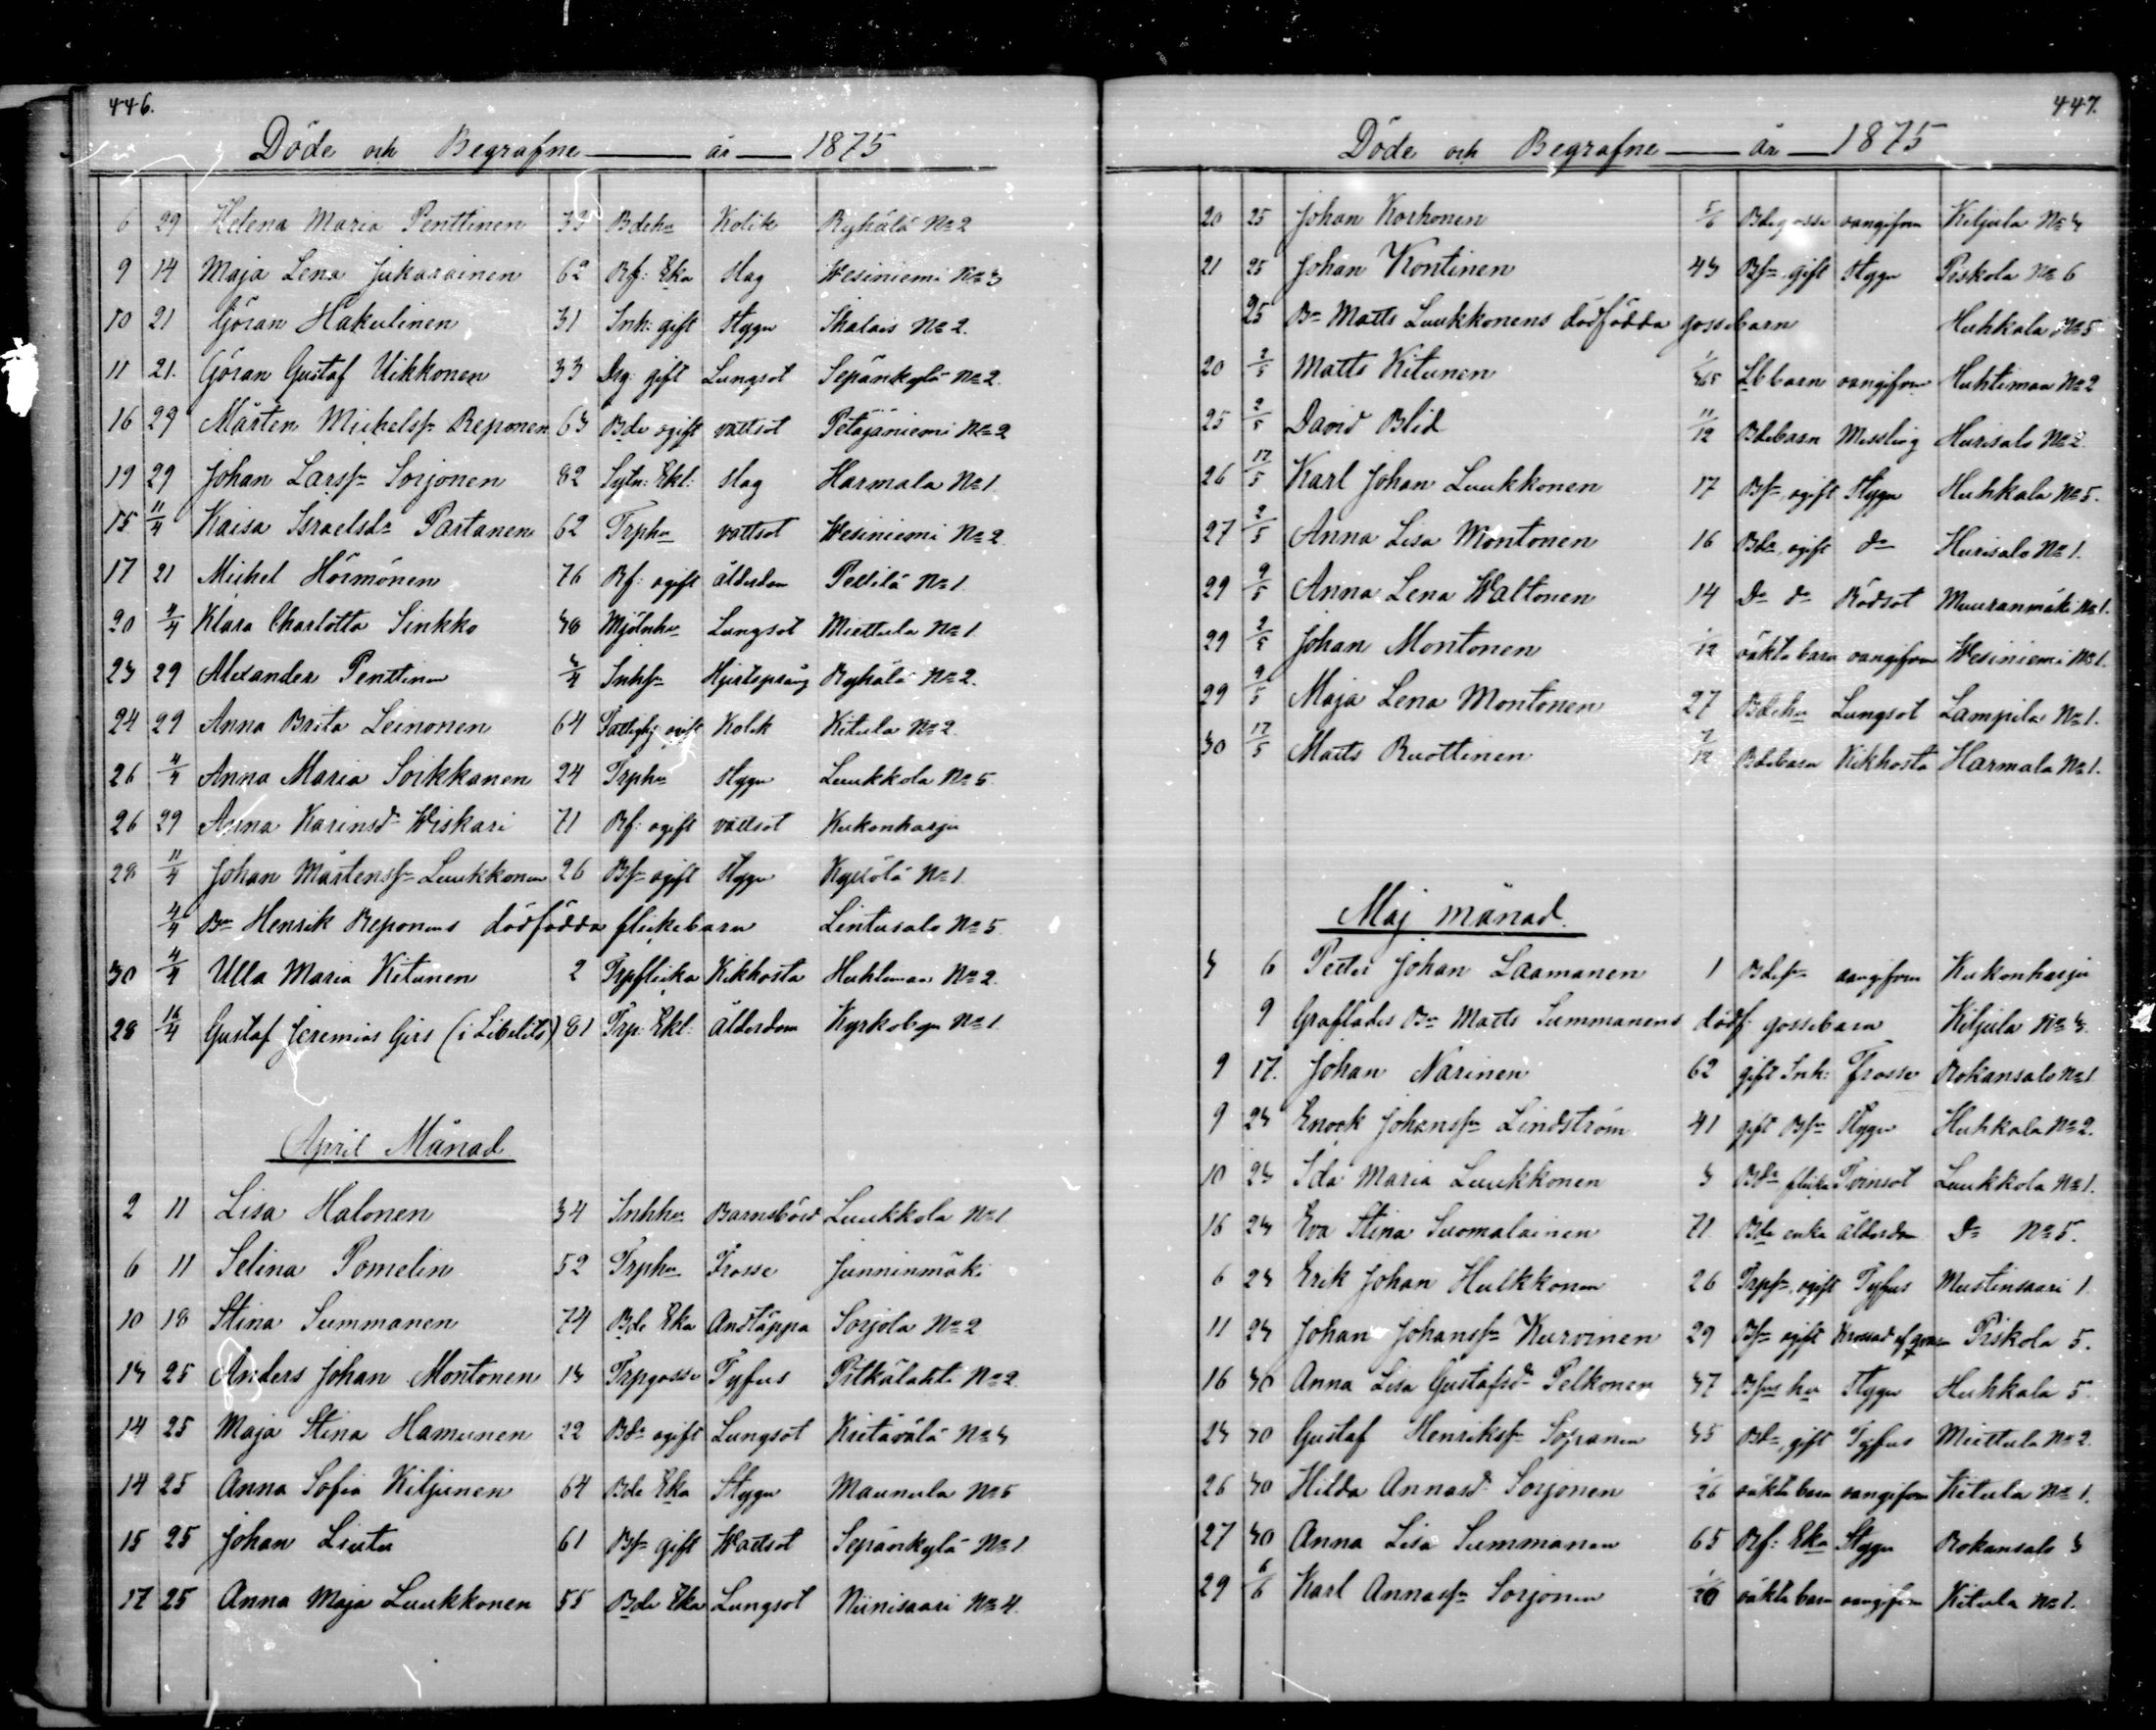 446.
Döde och Begrafne år 1875
6 29 Helena Maria Penttinen 33 Bdehu Kolik Ryhälä No 2
9 14 Maja Lena Jukarainen 62 Rf: Eka Slag Wesiniemi No 3
10 21 Göran Hakulinen 31 Inh: gift Stygn Ikalais No 2.
11 21. Göran Gustaf Uikkonen 33 Drg: gift Lungsot Sepänkylä No 2.
16 29 Mårten Michelss: Reponen 63 Bde ogift vattsot Petäjäniemi No 2
19 29 Johan Larss: Sorjonen 82 Sytn: Ekl: slag Harmala No 1.
15 11/4 Kaisa Israelsdr Partanen 62 Trphu vattsot Wesiniemi No 2
17 21 Michel Hörmönen 76 Rf: ogift ålderdom Pellilä No 1
20 4/4 Klara Charlotta Sinkko 38 Mjölnhu Lungsot Miettula No 1
23 29 Alexander Penttinen 3/4 Inhs Hjertsprång Ryhälä No 2.
24 29 Anna Brita Leinonen 64 Fattighj ogift Kolik Kitula No 2
26 4/4 Anna Maria Soikkanen 24 Trphu Stygn Luukkola No 5
26 29 Anna Karinsd Wiskari 71 Rf: ogift vattsot Kukonharju
28 11/4 Johan Mårtenss: Luukkonen 26 Bs ogift Stygn Kyllölä No 1
4/4 Bn Henrik Reponens dödfödda flickebarn Lintusalo No 5
30 4/4 Ulla Maria Kitunen 2 Trpflicka Kikhosta Huhtimaa No 2.
28 16/4 Gustaf Jeremias Girs (i Libelits) 81 Trp: Ekl: Ålderdom Kyrkobyn No 1
April Månad
2 11 Lisa Halonen 34 Inhhu Barnsbörd Luukkola No 1
6 11 Selina Pomelin 52 Trphu Frosse Junninmäki
10 18 Stina Summanen 74 Bde Eka Andtäppa Sorjola No 2
13 25 Anders Johan Montonen 13 Trpgosse Tyfus Pitkälahti No 2
14 25 Maja Stina Hamunen 22 Bdr ogift Lungsot Kietävälä No 3
14 25 Anna Sofia Kiljunen 64 Bde Eka Stygn Maunula No 5
15 25 Johan Liuta 61 Bs gift Wattsot Sepänkylä No 1
17 25 Anna Maja Luukkonen 55 Bde Eka Lungsot Niinisaari No 4.
447.
Döde och Begrafne år 1875
20 25 Johan Korhonen 5/6 Bdegosse oangifven Kiljula No 3
21 25 Johan Kontinen 43 Bs gift Stygn Piskola No 6
25 Bn Matts Luukkonens dödfödda gossebarn Huhkala No 5
20 2/5 Matts Kitunen 1/365 Lbbarn oangifven Huhtimaa No 2
25 2/5 David Blid 11/12 Bdebarn Messling Hurisalo No 2
26 17/5 Karl Johan Luukkonen 17 Bs ogift Stygn Huhkala No 5.
27 2/5 Anna Lisa Montonen 16 Bdr ogift do Hurisalo No 1.
29 9/5 Anna Lena Waltonen 14 Do do Rödsot Muuranmäki No 1.
29 2/5 Johan Montonen 1/12 oäkta barn oangifven Wesiniemi No 1.
29 9/5 Maja Lena Montonen 27 Bdehu Lungsot Lampila No 1.
30 17/5 Matts Ruottinen 7/12 Bdebarn Kikhosta Harmala No 1.
Maj månad.
3 6 Petter Johan Laamanen 1 Bdes oangifven Kukonharju
9 Graflades Bn Matts Summanens dödf: gossebarn Kiljula No 3.
9 17. Johan Närinen 62 gift Inh: Frosse Rokansalo No 1
9 23 Enock Johanss: Lindström 41 gift Bs Stygn Huhkala No 2.
10 23 Ida Maria Luukkonen 3 Bdr flicka Tvinsot Luukkola No 1.
16 23 Eva Stina Suomalainen 71 Bde enka ålderdom Do No 5.
6 23 Erik Johan Hulkkonen 26 Trps ogift Tyfus Mustinsaari 1
11 23 Johan Johanss: Kurvinen 29 Bs ogift Krossad af Piskola 5.
16 30 Anna Lisa Gustafsd: Pelkonen 37 Bshu Stygn Huhkala 5.
23 30 Gustaf Henrikss: Sopanen 35 Bde gift Tyfus Miettula No 2.
26 30 Hilda Annasd Sorjonen 1/26 oäkta barn oangifven Kitula No 1.
27 30 Anna Lisa Summanen 65 Rf: Eka Stygn Rokansalo 3
29 6/6 Karl Annass: Sorjonen oäkta barn oangifven Kitula No 1.